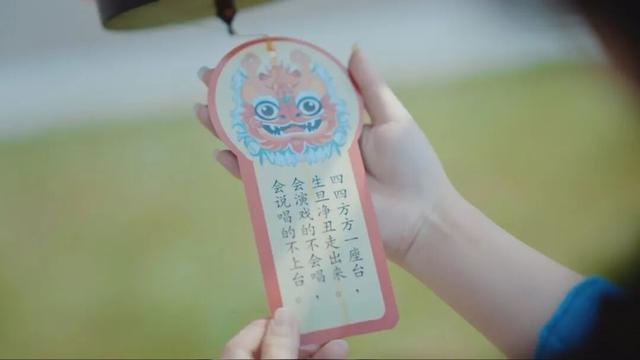 四四方方一座台，
生旦净丑走出来。
会演戏的不会唱，
会说唱的不上台。